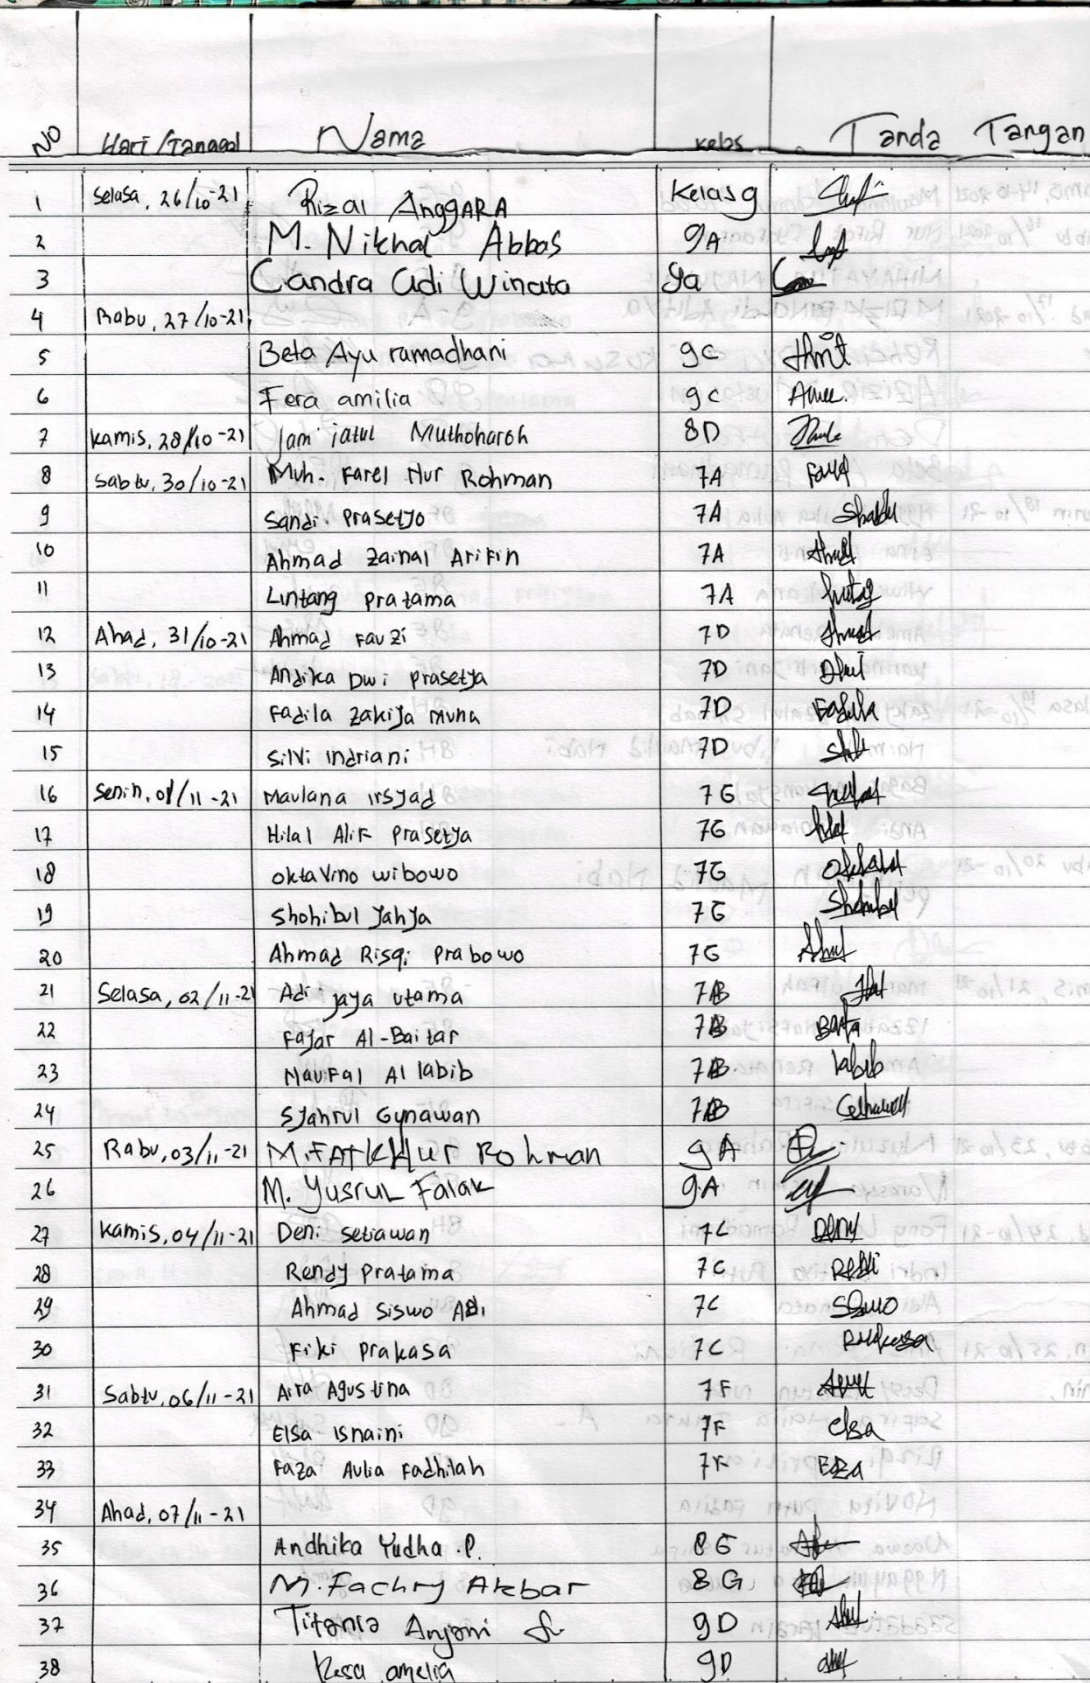 NO Hari/Tanggal Nama Kelas Tanda Tangan
1 Selasa, 26/10-21 Rizal Anggara Kelas 9
2 M. Nikhal Abbas 9A
3 Candra Adi Winata 9a
4 Rabu, 27/10-21
5 Beta Ayu ramadhani 9C
6 Fera amilia 9c
7 Kamis, 28/10-21 Jam'iatul Muthoharoh 8D
8 Sabtu, 30/10-21 Muh. Farel Nur Rohman 7A
9 Sandi Prasetyo 7A
10 Ahmad Zainal Arifin 7A
11 Lintang Pratama 7A
12 Ahad, 31/10-21 Ahmad Fauzi 7D
13 Andika Dwi Prasetya 7D
14 Fadila Zakiya Muna 7D
15 Silvi Indriani 7D
16 Senin, 01/11-21 Maulana Irsyad 7G
17 Hilal Alif Prasetya 7G
18 Oktavino wibowo 7G
19 Shohibul Yahya 7G
20 Ahmad Risqi Prabowo 7G
21 Selasa, 02/11-21 Adi jaya utama 7B
22 Fajar Al-Baitar 7B
23 Naufal Al labib 7B labib
24 Syahrul Gunawan 7B
25 Rabu, 03/11-21 M. FATKHUR Rohman 9A
26 M. Yusrul Falak 9A
27 Kamis, 04/11-21 Deni Setiawan 7C
28 Rendy Pratama 7C
29 Ahmad Siswo Adi 7C
30 Fiki Prakasa 7C
31 Sabtu, 06/11-21 Aira Agustina 7F
32 Elsa Isnaini 7F elsa
33 Faza Aulia Fadhilah 7F
34 Ahad, 07/11-21
35 Andhika Yudha .P. 8G
36 M. Fachry Akbar 8G
37 Titania Anjani S. 9D
38 Kesa amelia 9D